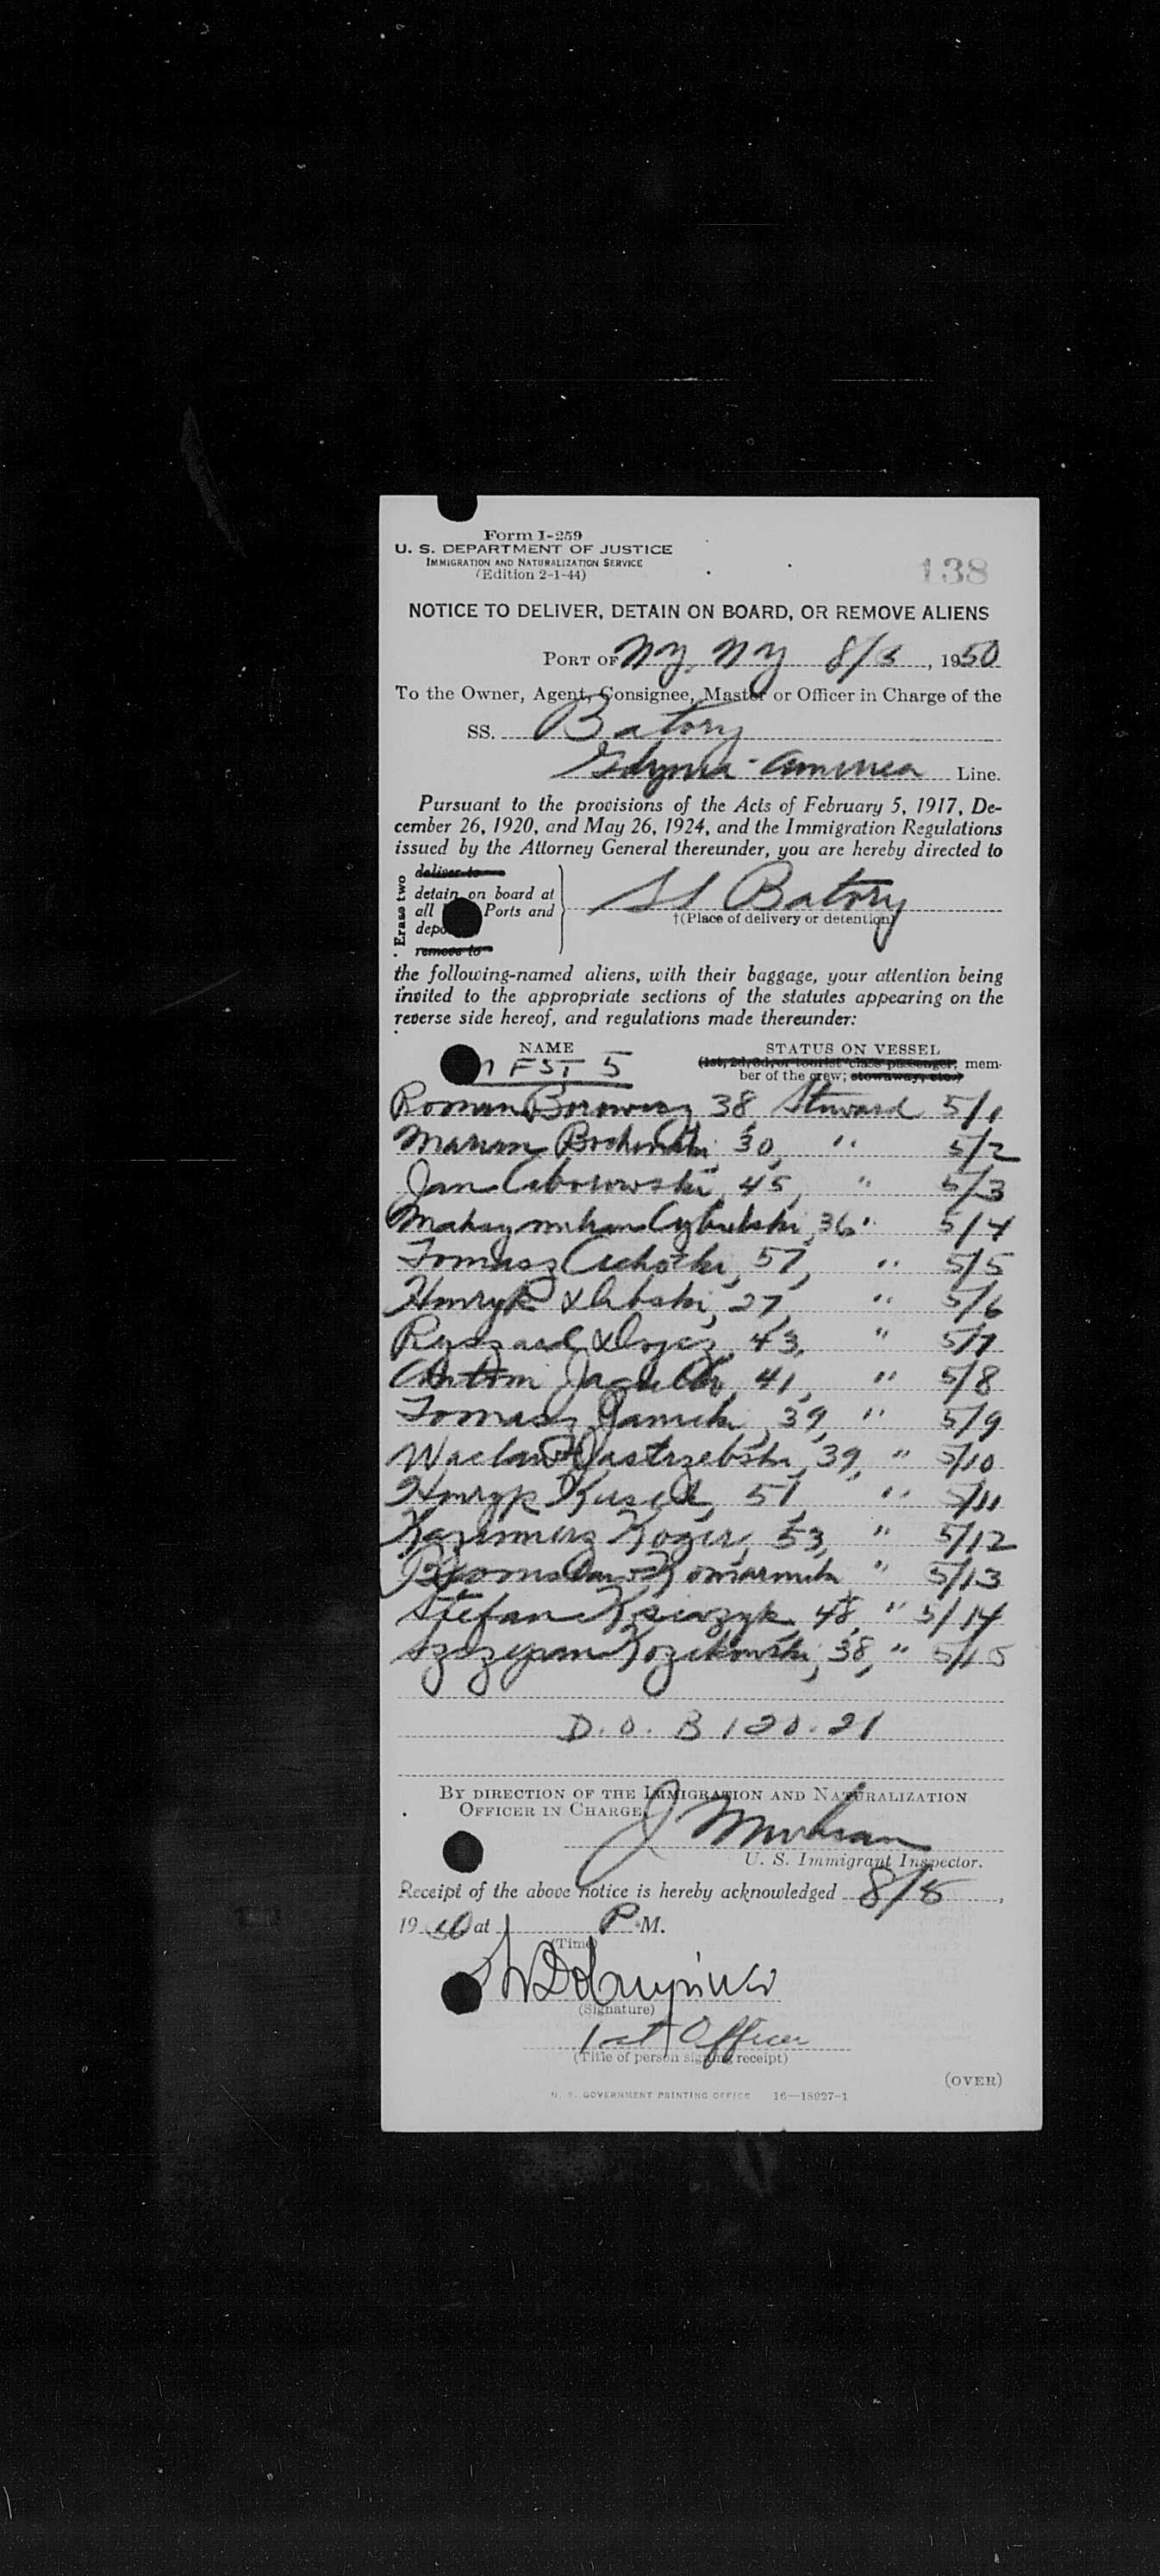 Form I-259
U. S. DEPARTMENT OF JUSTICE
IMMIGRATION AND NATURALIZATION SERVICE
(Edition 2-1-44)
138
NOTICE TO DELIVER, DETAIN ON BOARD, OR REMOVE ALIENS
PORT OF NY, NY 8/8, 1950
To the Owner, Agent, Consignee, Master or Officer in Charge of the
SS. Batory
Gdynia-America Line.
Pursuant to the provisions of the Acts of February 5, 1917, De-
cember 26, 1920, and May 26, 1924, and the Immigration Regulations
issued by the Attorney General thereunder, you are hereby directed to
Erase two
deliver to
detain on board at
all Ports and
remove to
SS Batory
†(Place of delivery or detention)
the following-named aliens, with their baggage, your attention being
invited to the appropriate sections of the statutes appearing on the
reverse side hereof, and regulations made thereunder:
NAME STATUS ON VESSEL
FST 5 (1st, 2d, 3d, or tourist class passenger; mem-
ber of the crew; stowaway, etc.)
Roman 38 Steward 5/1
Marian 30, " 5/2
Jan Ciborowski, 45, " 5/3
Cybulski, 36 " 5/4
Tomasz Cichocki, 57, " 5/5
Henryk 27, " 5/6
Ryszard 43, " 5/7
Antoni 41, " 5/8
Tomasz Janicki, 39, " 5/9
Waclaw Jastrzebski, 39, " 5/10
Henryk 51, " 5/11
Kazimierz 53, " 5/12
Bronislaw " 5/13
Stefan Ksiazyk, 48, " 5/14
Szczepan 38, " 5/15
D. O. B 120.21
BY DIRECTION OF THE IMMIGRATION AND NATURALIZATION
OFFICER IN CHARGE
J
U. S. Immigrant Inspector.
Receipt of the above notice is hereby acknowledged 8/8,
1950 at P M.
(Time)
(Signature)
1st Officer
(Title of person signing receipt)
(OVER)
U. S. GOVERNMENT PRINTING OFFICE 16—18027-1